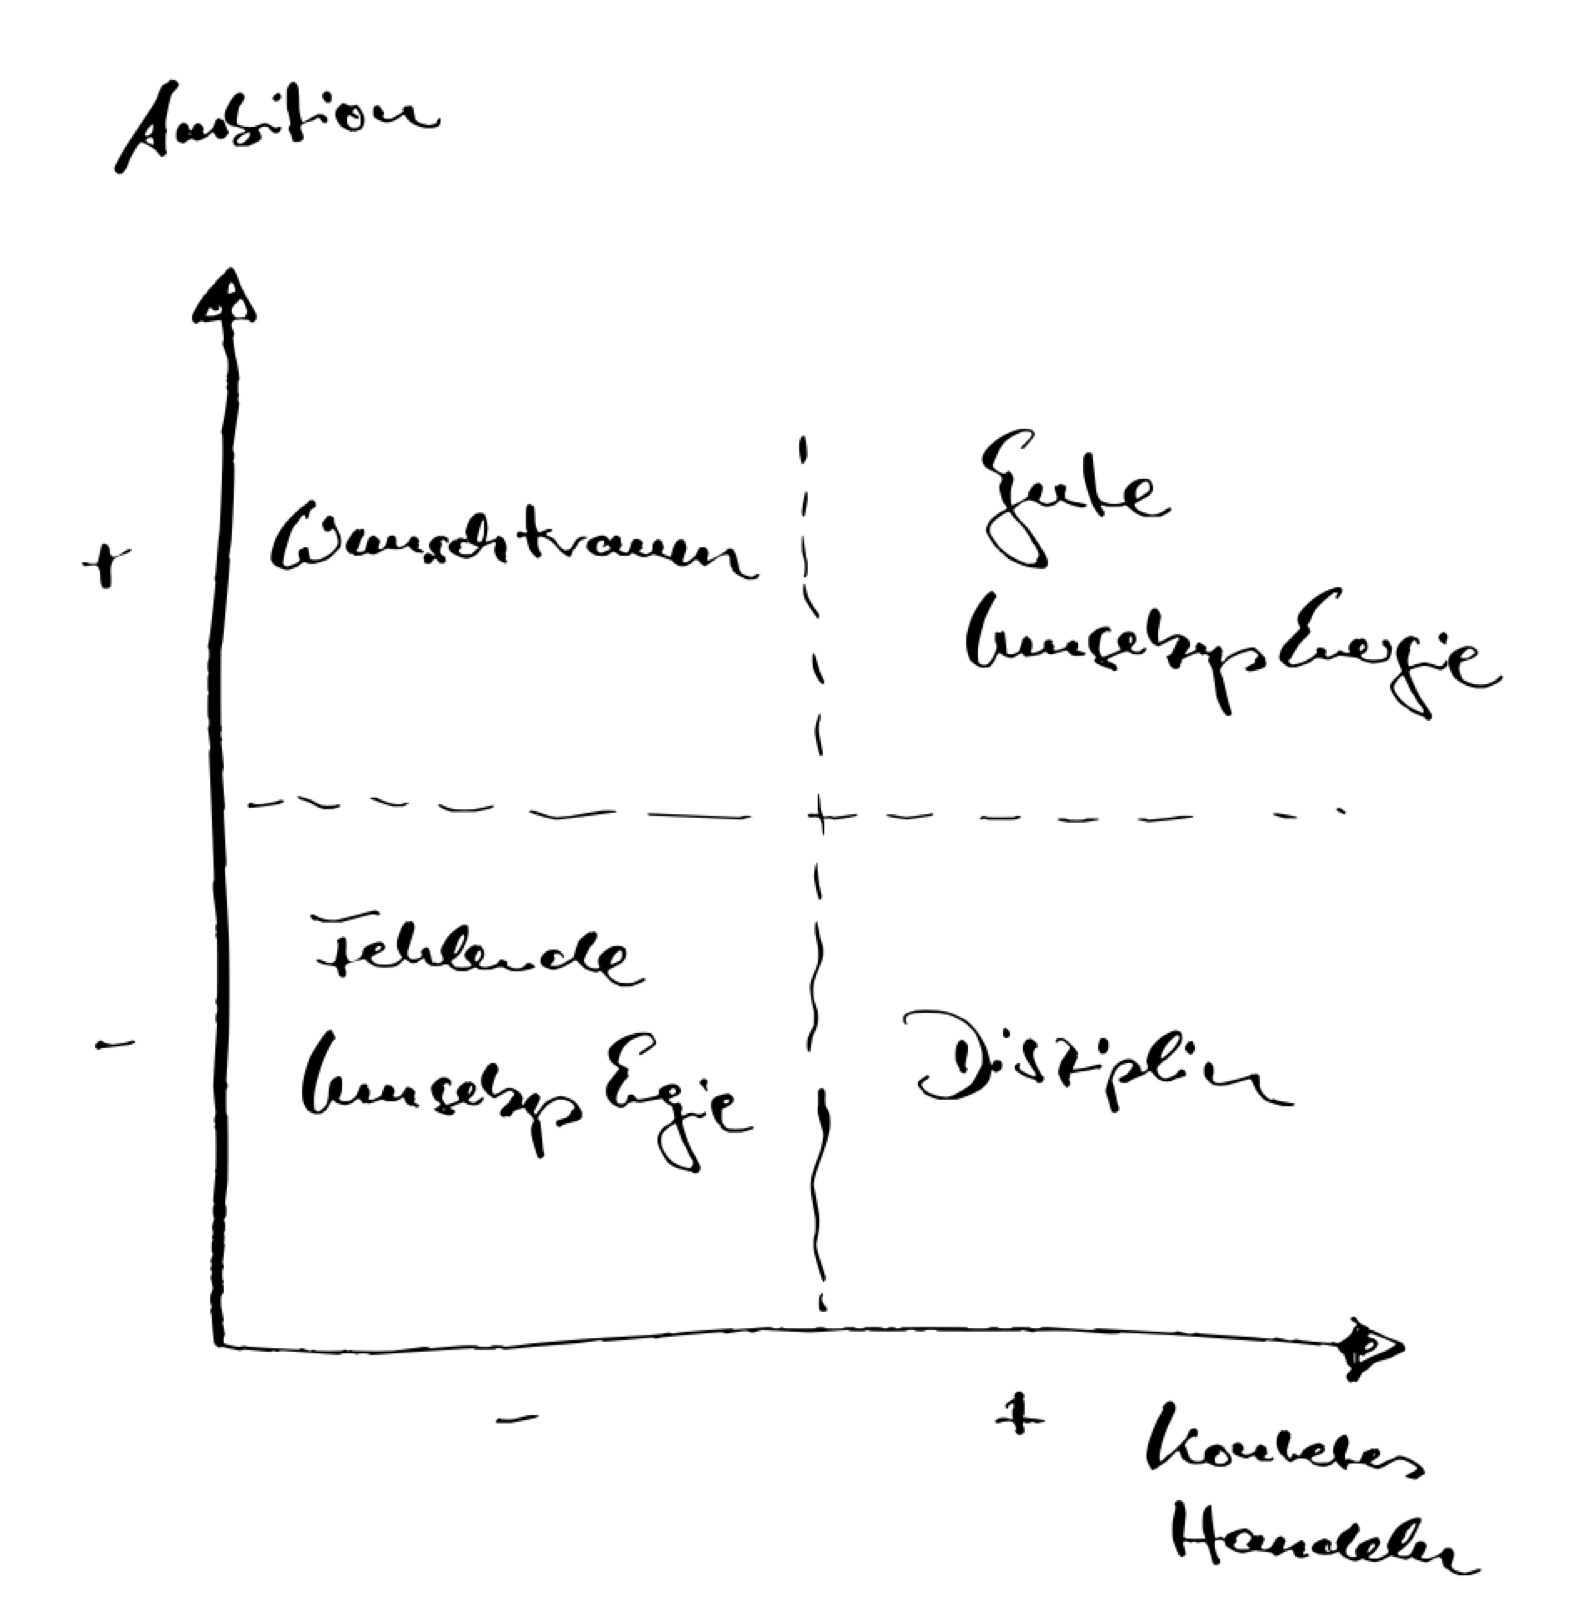 Ambition
+
Wunschtraum
Gute
Umsetzungs Energie
Fehlende
-
Umsetzungs Energie
Disziplin
- +
Konkretes
Handeln